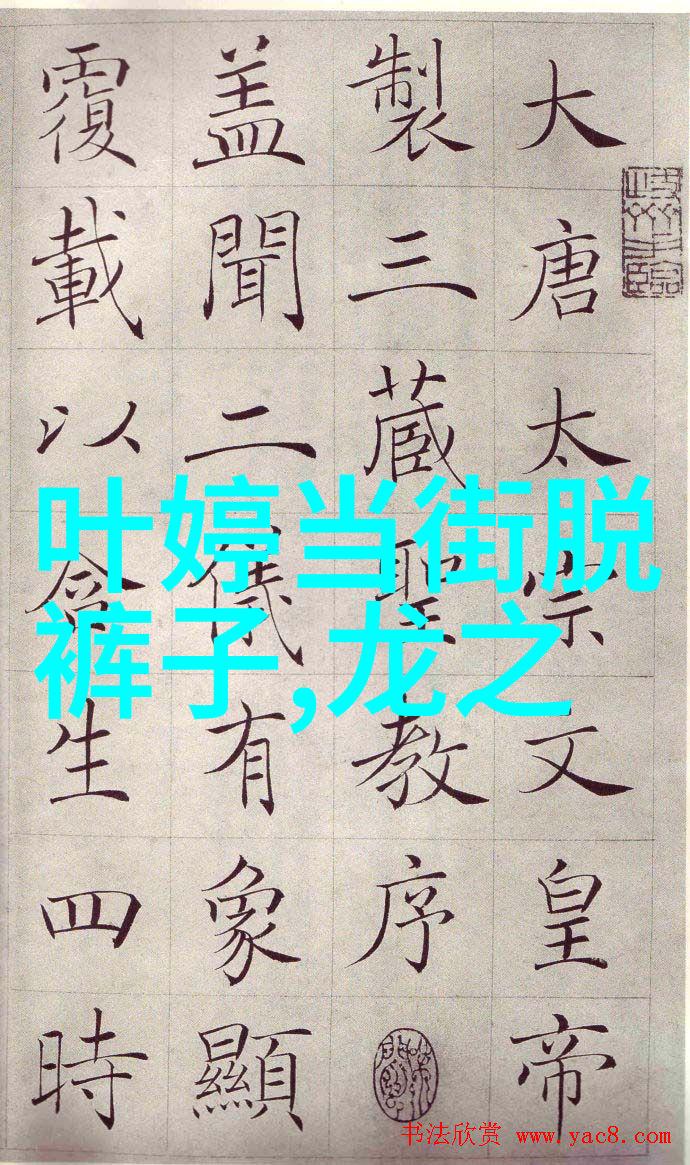 大唐太宗文皇帝
製三藏聖教序
盖聞二儀有象顯
覆載以含生四時
叶婷当街脱
裤子,龙之
书法欣赏 www.yac8.com